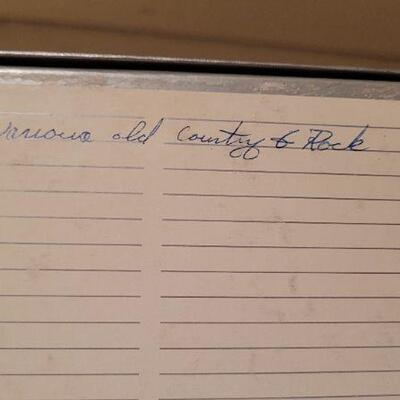 various old country & Rock